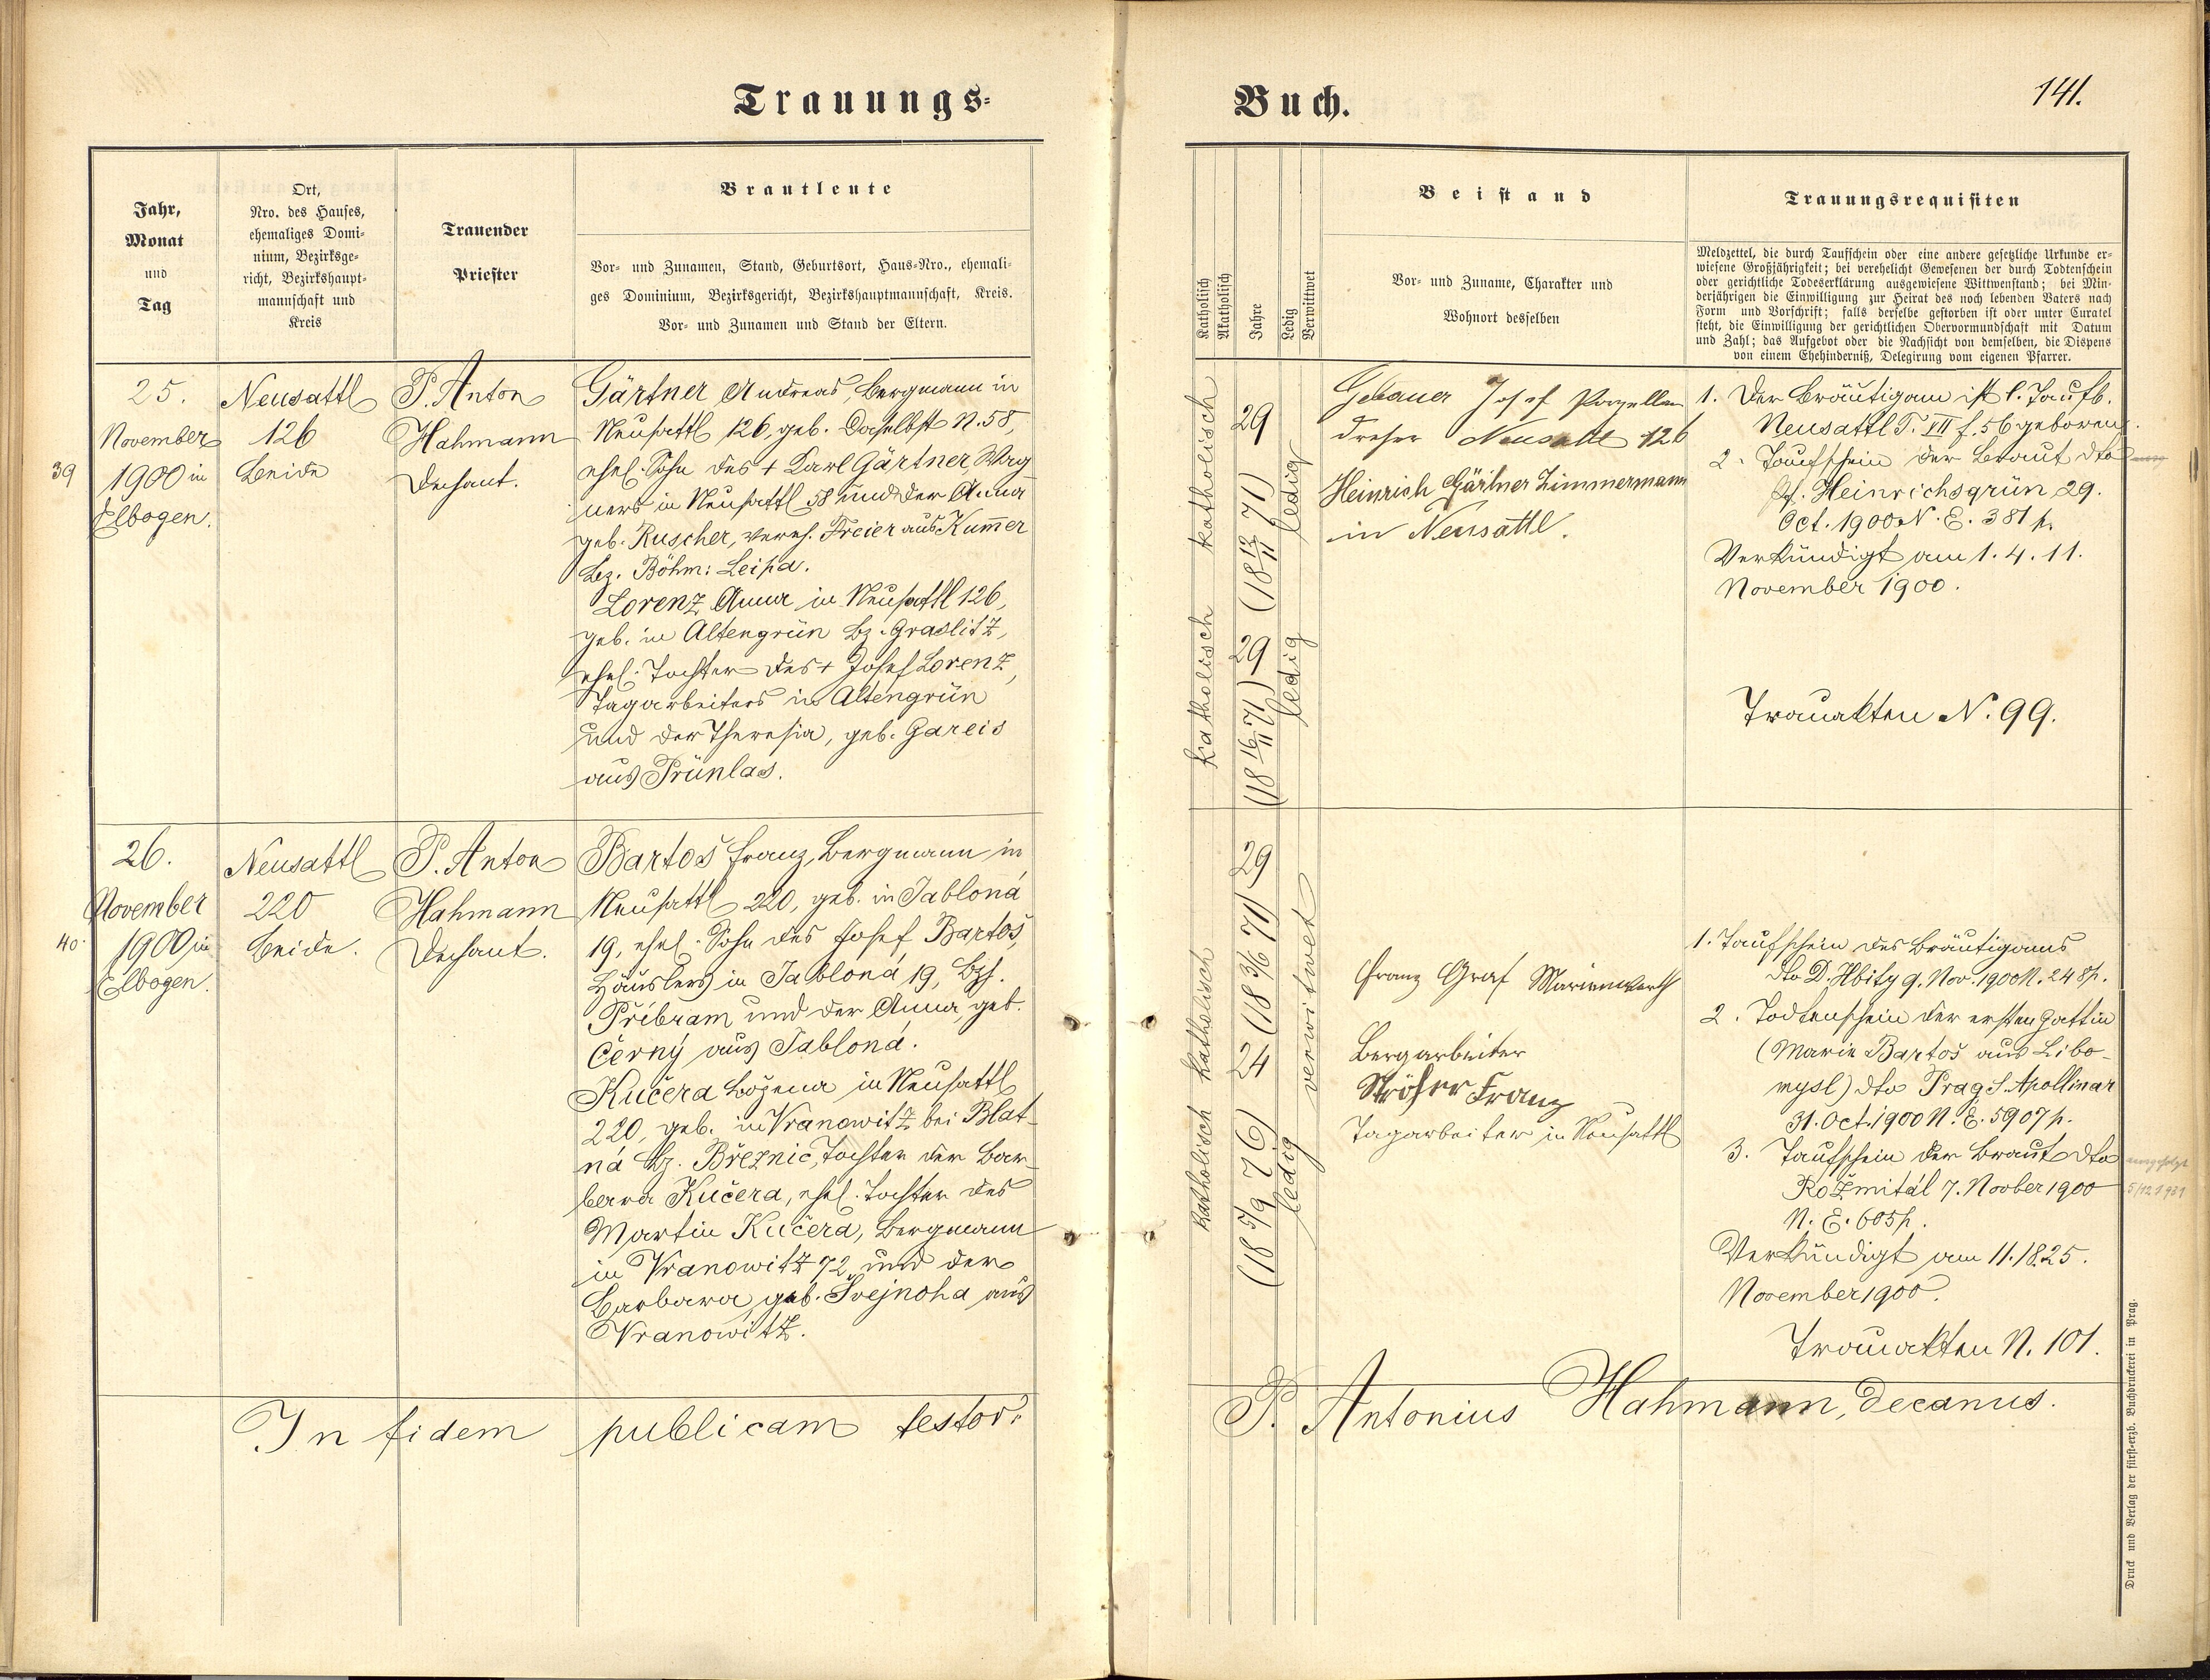 Trauungs-
Buch.
141.
Jahr,
Monat
und
Tag
Ort,
Nro. des Hauses,
ehemaliges Domi-
nium, Bezirksge-
richt, Bezirkshaupt-
mannschaft und
Kreis
Trauender
Priester
Brautleute
Vor- und Zunamen, Stand, Geburtsort, Haus-Nro., ehemali-
ges Dominium, Bezirksgericht, Bezirkshauptmannschaft, Kreis.
Vor- und Zunamen und Stand der Eltern.
Katholisch
Akatholisch
Jahre
Ledig
Verwittwet
Beistand
Vor- und Zuname, Charakter und
Wohnort desselben
Trauungsrequisiten
Meldzettel, die durch Taufschein oder eine andere gesetzliche Urkunde er-
wiesene Großjährigkeit; bei verehelicht Gewesenen der durch Todtenschein
oder gerichtliche Todeserklärung ausgewiesene Wittwenstand; bei Min-
derjährigen die Einwilligung zur Heirat des noch lebenden Vaters nach
Form und Vorschrift; falls derselbe gestorben ist oder unter Curatel
steht, die Einwilligung der gerichtlichen Obervormundschaft mit Datum
und Zahl; das Aufgebot oder die Nachsicht von demselben, die Dispens
von einem Ehehinderniß, Delegirung vom eigenen Pfarrer.
39
25.
November
1900 in
Elbogen.
Neusattl
126
beide
P. Anton
Hahmann
Dechant.
Gärtner Andreas, Bergmann in
Neusattl 126, geb. daselbst N. 58,
ehel. Sohn des + Karl Gärtner, Wag
ners in Neusattl 58 und der Anna
geb. Ruscher, vereh. Freier aus Kum̄er
Bz. Böhm: Leipa.
Lorenz Anna in Neusattl 126,
geb. in Altengrün Bz. Graslitz,
ehel. Tochter des + Josef Lorenz,
Tagarbeiters in Altengrün
und der Theresia, geb. Gareis
aus Prünlas.
katholisch
29
(18 13/11 71)
ledig
katholisch
29
(18 16/11 71)
ledig
Gebauer Josef Porzellan
dreher Neusattl 126
Heinrich Gärtner Zimmermann
in Neusattl.
1. Der Bräutigam ist l. Taufb.
Neusattl T. VII f. 56 geboren.
2. Taufschein der Braut dto
Pf. Heinrichsgrün 29.
Oct. 1900 N. E. 381 p.
Verkündigt am 1. 4. 11.
November 1900.
Trauakten N. 99.
40.
26.
November
1900 in
Elbogen.
Neusattl
220
beide.
P. Anton
Hahmann
Dechant.
Bartoš Franz, Bergmann in
Neusattl 220, geb. in Jabloná
19, ehel. Sohn des Josef Bartoš,
Häuslers in Jabloná 19, Bzh.
Příbram und der Anna, geb.
Černý aus Jabloná.
Kučera Božena in Neusattl
220, geb. in Vranowitz bei Blat-
ná Bz. Březnic, Tochter der Bar-
bara Kučera, ehel. Tochter des
Martin Kučera, Bergmann
in Vranowitz 72, und der
Barbara, geb. Švejnoha aus
Vranowitz.
katholisch
29
(18 3/6 71)
verwitwet
katholisch
24
(18 5/9 76)
ledig
Franz Graf
Bergarbeiter
Ströher Franz
Tagarbeiter in Neusattl
1. Taufschein des Bräutigams
dto D. Hbity 9. Nov. 1900 N. 248 p.
2. Todtenschein der ersten Gattin
(Marie Bartoš aus Libo-
mysl) dto Prag S. Apollinar
31. Oct. 1900 N. E. 5907 p.
3. Taufschein der Braut dto
Rožmitál 7. Novber 1900
N. E. 605 p.
Verkündigt am 11. 18. 25.
November 1900.
Trauakten N. 101.
In fidem publicam testor:
P. Antonius Hahmann, Decanus.
Druck und Verlag der fürst-erzb. Buchdruckerei in Prag.